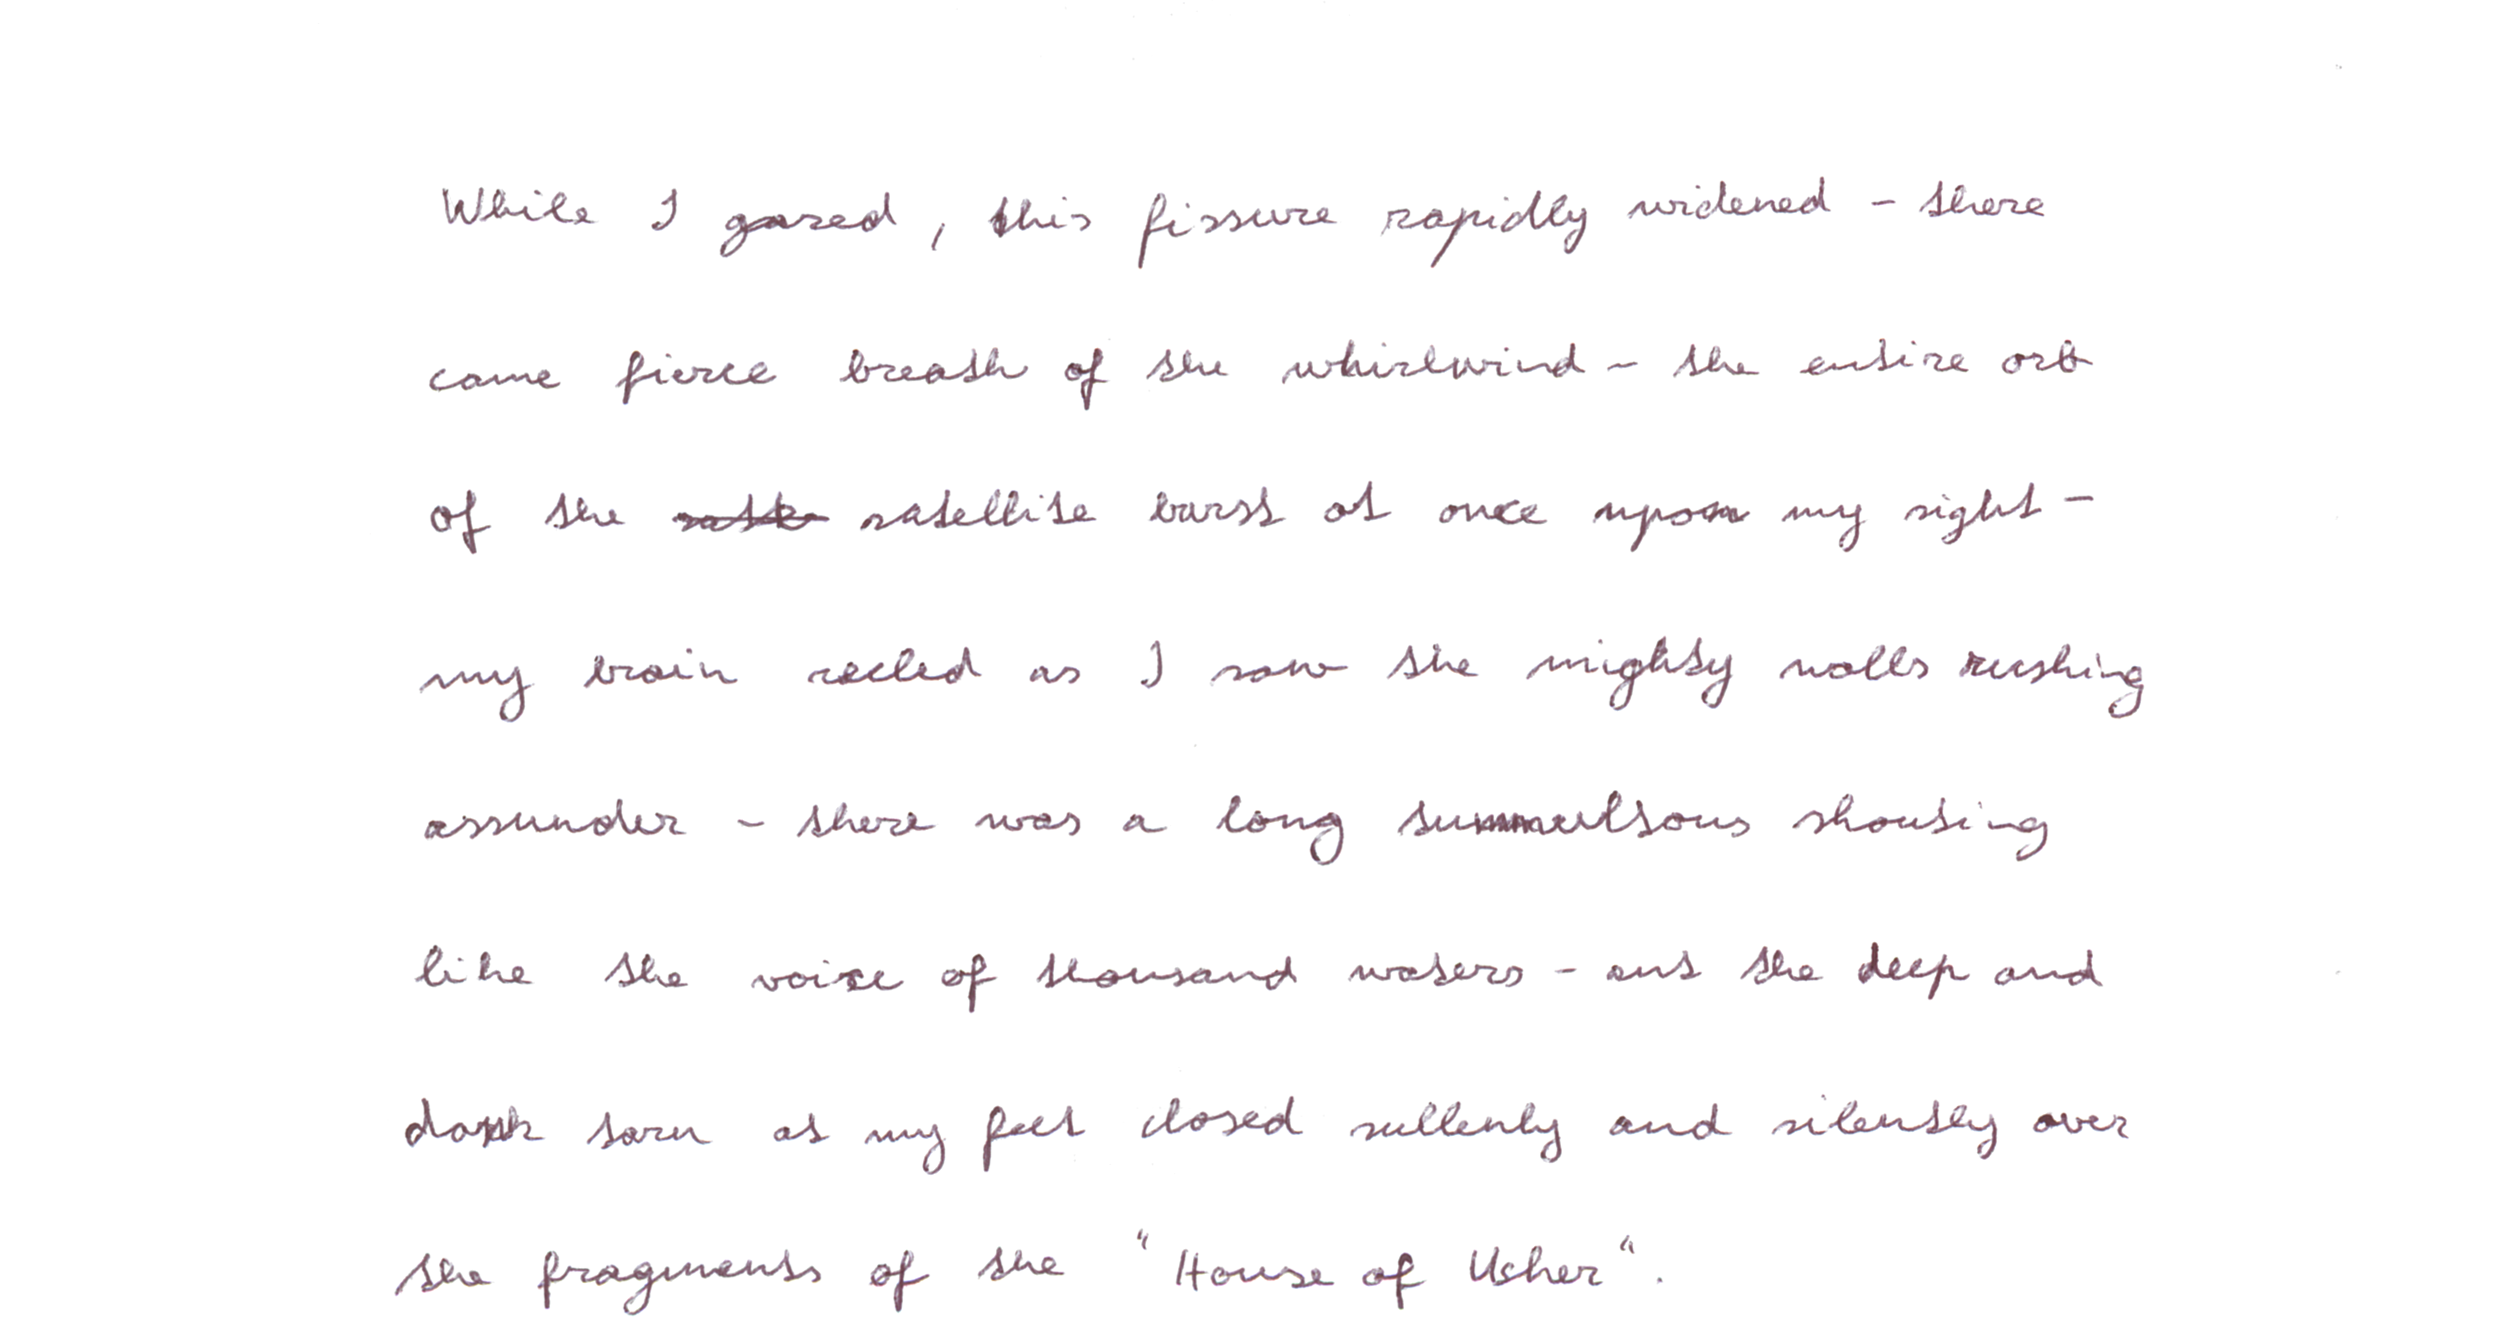 While I gazed, this fissure rapidly widened - there
came fierce breath of the whirlwind - the entire orb
of the satellite burst at once upon my sight -
my brain reeled as I saw the mighty walls rushing
assunder - there was a long tummultous shouting
like the voice of thousand waters - ant the deep and
dark tarn at my feet closed sullenly and silently over
the fragments of the "House of Usher".